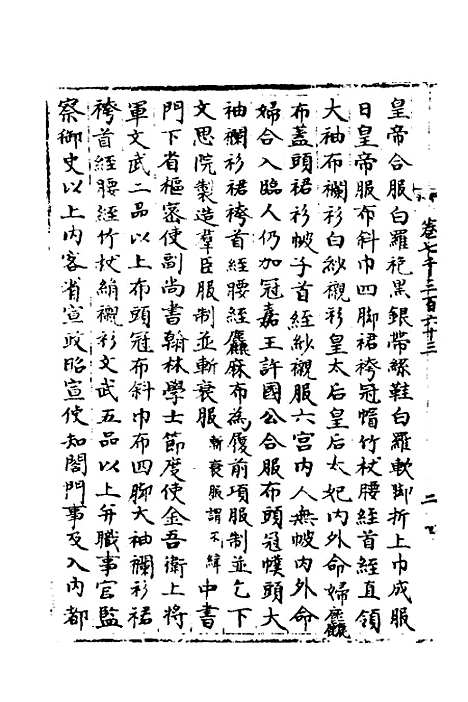 卷七千三百六十三
二
皇帝合服白羅袍黑銀帶絲鞋白羅軟脚折上巾成服
日皇帝服布斜巾四脚裙袴冠帽竹杖腰絰首絰直領
大袖布襴衫白紗襯衫皇太后皇后太妃内外命婦麤
布蓋頭裙衫帔子首絰紗襯服六宮内人無帔内外命
婦合入臨人仍加冠嘉王許國公合服布頭冠幞頭大
袖襴衫裙袴首絰腰絰麤麻布為履前項服制並乞下
文思院製造羣臣服制並斬衰服斬衰服謂不緝中書
門下省樞密使副尚書翰林學士節度使金吾衛上將
軍文武二品以上布頭冠布斜巾布四脚大袖襴衫裙
袴首絰腰絰竹杖絹襯衫文武五品以上并職事官監
察御史以上内客省宣政昭宣使知閤門事及入内都